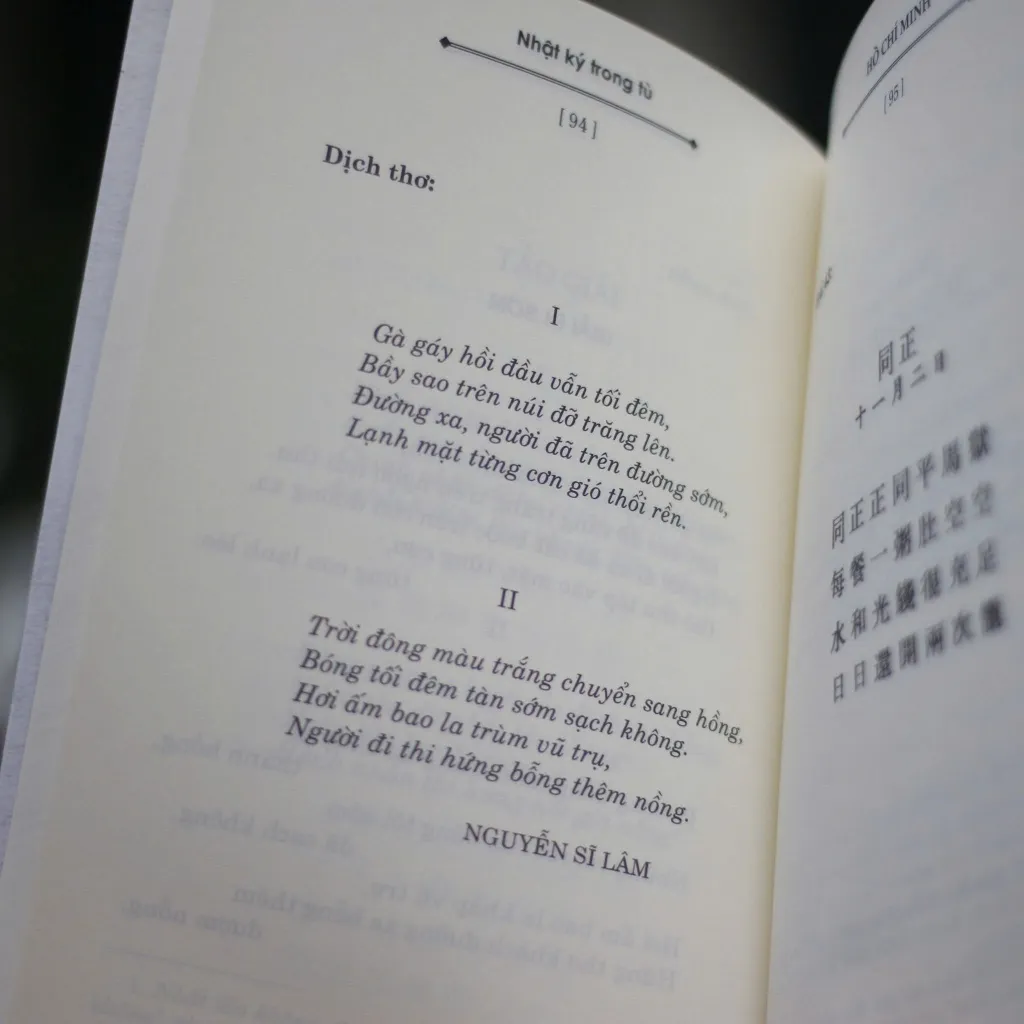 Nhật ký trong tù
[ 94 ]
Dịch thơ:
I
Gà gáy hồi đầu vẫn tối đêm,
Bầy sao trên núi đỡ trăng lên.
Đường xa, người đã trên đường sớm,
Lạnh mặt từng cơn gió thổi rền.
II
Trời đông màu trắng chuyển sang hồng,
Bóng tối đêm tàn sớm sạch không.
Hơi ấm bao la trùm vũ trụ,
Người đi thi hứng bỗng thêm nồng.
NGUYỄN SĨ LÂM
HỒ CHÍ MINH
[ 95 ]
同正
十一月二日
同正正同平馬獄
每餐一粥肚空空
水和光綫很充足
日日還開兩次籠